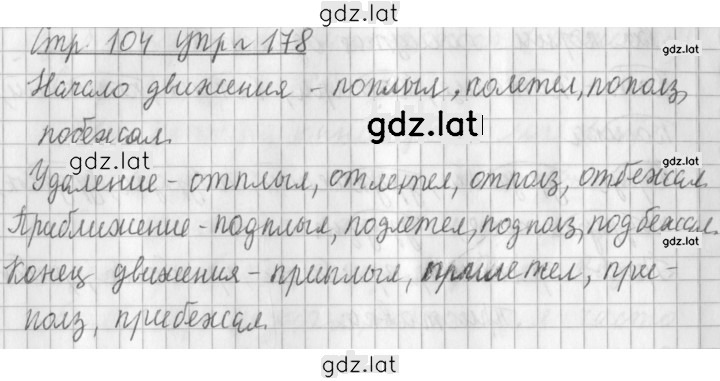 gdz.lat
Стр. 104 упр. 178
Начало движения - поплыл, полетел, пополз,
побежал.
gdz.lat
gdz.lat
Удаление - отплыл, отлетел, отполз, отбежал.
gdz.lat
gdz.lat
Приближение - подплыл, подлетел, подполз, подбежал.
Конец движения - приплыл, прилетел, при-
полз, прибежал.
gdz.lat